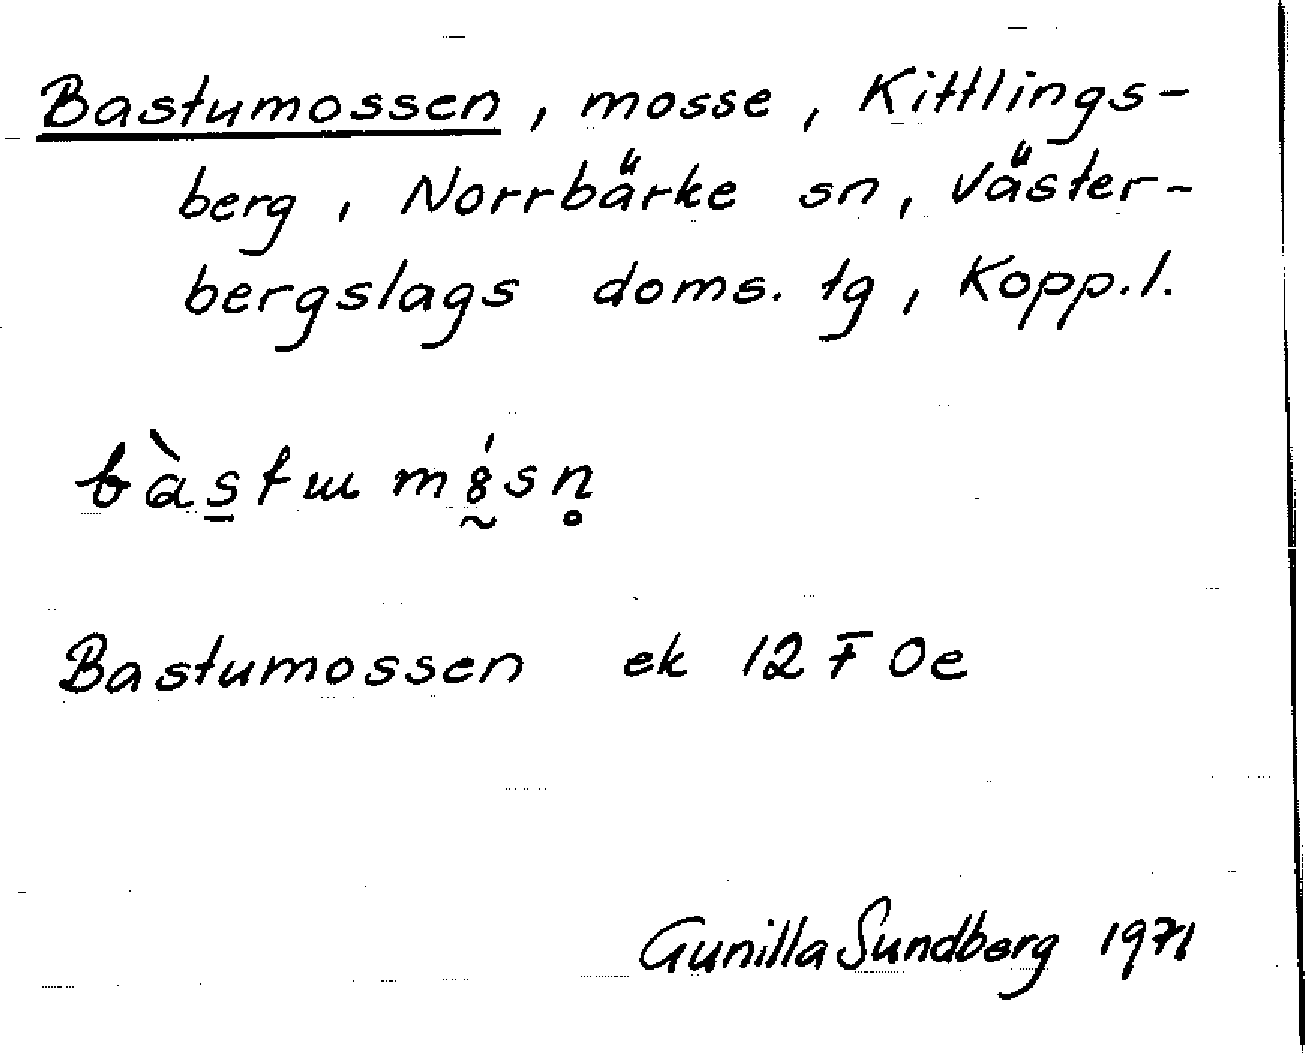 Bastumossen, mosse, Kittlings-
berg, Norrbärke sn, Väster-
bergslags doms. tg, Kopp.l.
bàs̲tɯ m8̰́sn̥
Bastumossen ek 12 F 0e
Gunilla Sundberg 1971